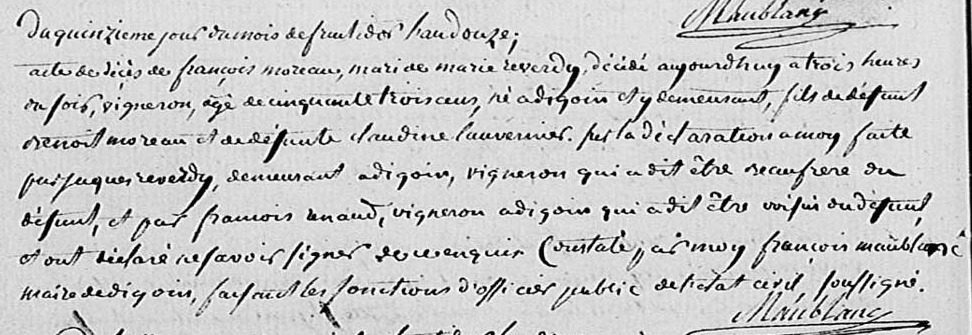 Maublanc
Du quinzieme jour du mois de fructidor l'an douze;
acte de décès de francois moreau, mari de marie reverdy, décédé aujourdhuy a trois heures
du soir, vigneron, âgé de cinquante trois ans, né a digoin et y demeurant, fils de défunt
benoit moreau et de défunte claudine lauvernier. sur la déclaration a moy faite
par jaques reverdy, demeurant a digoin, vigneron qui a dit être beaufrere du
défunt, et par francois renaud, vigneron a digoin qui a dit être voisin du défunt,
et ont déclaré ne savoir signer de ce enquis Constaté par moy francois maublanc
maire de digoin, faisant les fonctions d'officier public de l'etat civil soussigné.
Maublanc